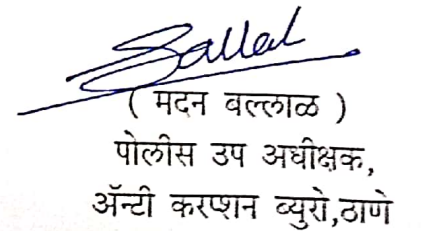 ( मदन बल्लाळ )
पोलीस उप अधीक्षक,
ॲन्टी करप्शन ब्युरो,ठाणे